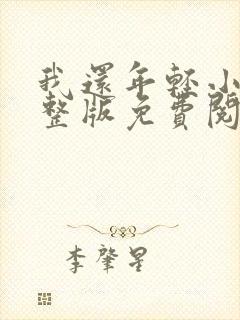 我還年輕小
整版免費閱
李肇星